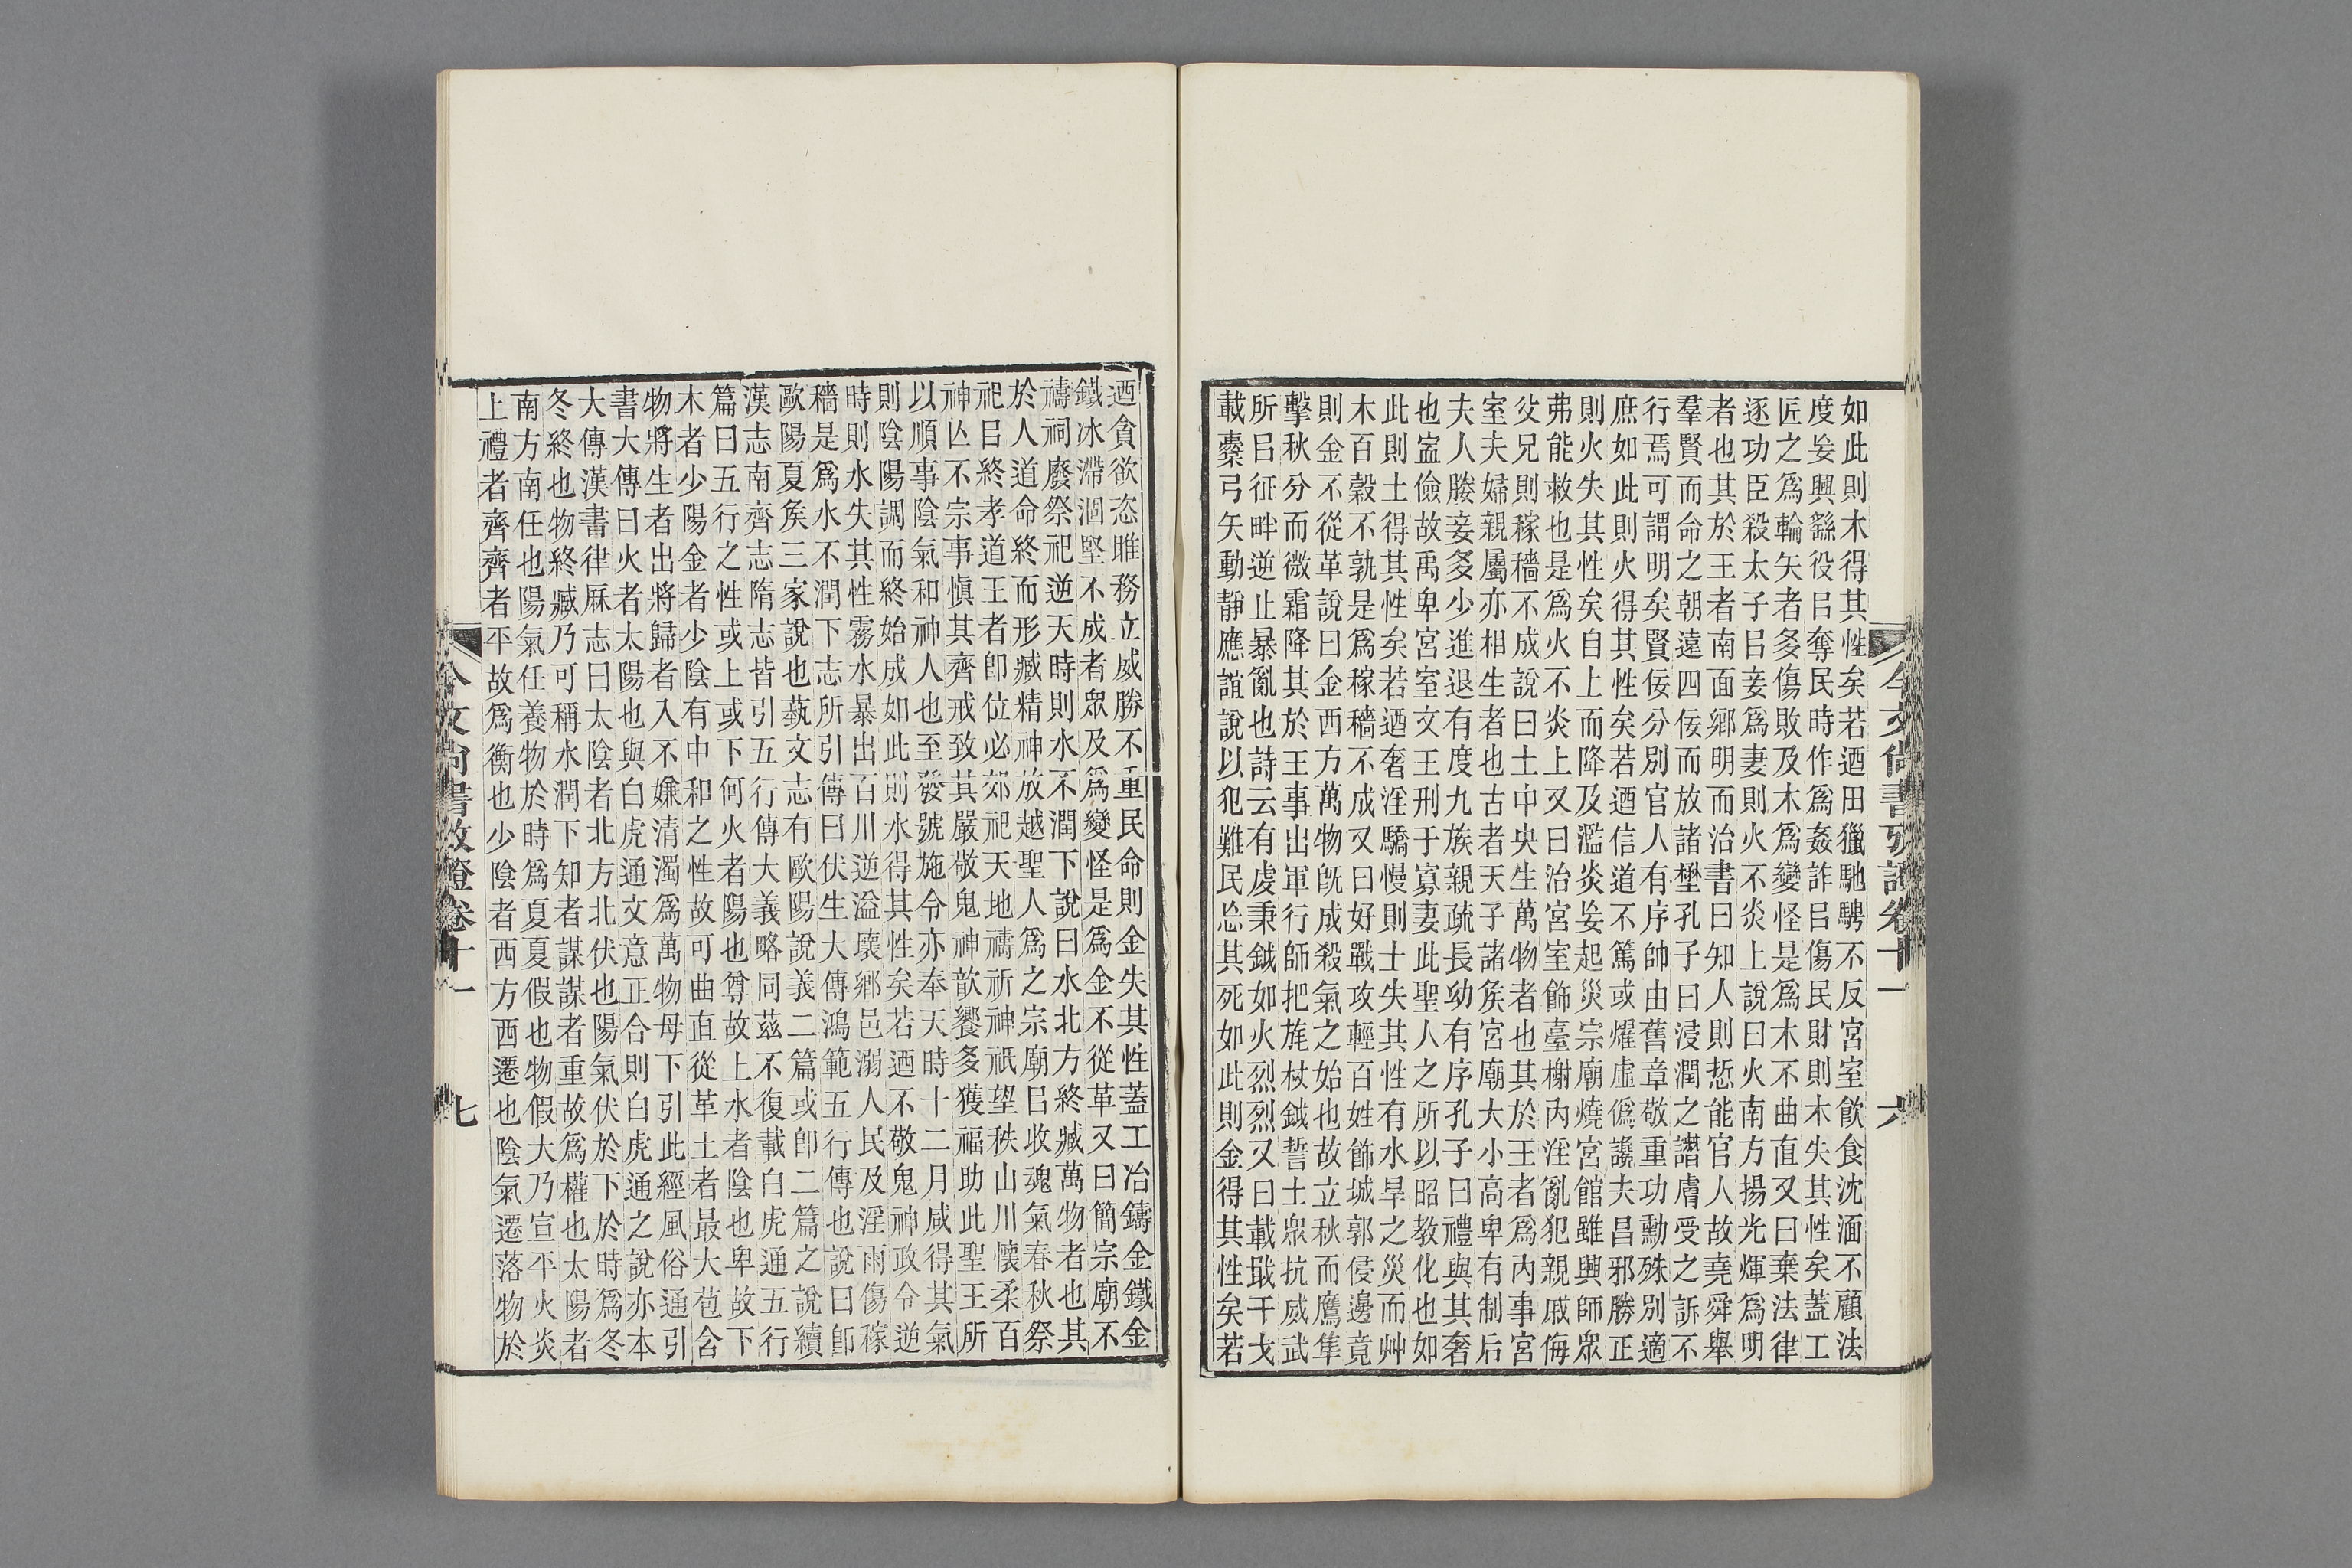 如此則木得其性矣若迺田獵馳騁不反宮室飮食沈湎不顧法
度妄興繇役㠯奪民時作爲姦詐㠯傷民財則木失其性矣蓋工
匠之爲輪矢者多傷敗及木爲變怪是爲木不曲直又曰棄法律
逐功臣殺太子㠯妾爲妻則火不炎上說曰火南方揚光煇爲明
者也其於王者南面鄉明而治書曰知人則悊能官人故堯舜舉
羣賢而命之朝遠四佞而放諸壄孔子曰浸潤之譖膚受之訴不
行焉可謂明矣賢佞分別官人有序帥由舊章敬重功勳殊別適
庶如此則火得其性矣若迺信道不篤或燿虛僞讒夫昌邪勝正
則火失其性矣自上而降及濫炎妄起災宗廟燒宮館雖興師眾
弗能救也是爲火不炎上又曰治宮室飾臺榭內淫亂犯親戚侮
父兄則稼穡不成說曰土中央生萬物者也其於王者爲內事宮
室夫婦親屬亦相生者也古者天子諸矦宮廟大小高卑有制后
夫人媵妾多少進退有度九族親疏長幼有序孔子曰禮與其奢
也寍儉故禹卑宮室文王刑于寡妻此聖人之所以昭教化也如
此則土得其性矣若迺奢淫驕慢則土失其性有水旱之災而艸
木百穀不孰是爲稼穡不成又曰好戰攻輕百姓飾城郭侵邊竟
則金不從革說曰金西方萬物旣成殺氣之始也故立秋而鷹隼
擊秋分而微霜降其於王事出軍行師把旄杖鉞誓士眾抗威武
所㠯征畔逆止暴亂也詩云有虔秉鉞如火烈烈又曰載戢干戈
載櫜弓矢動靜應誼說以犯難民忘其死如此則金得其性矣若
今文尚書攷證卷十一 六
迺貪欲恣睢務立威勝不重民命則金失其性蓋工冶鑄金鐵金
鐵冰滯涸堅不成者眾及爲變怪是爲金不從革又曰簡宗廟不
禱祠廢祭祀逆天時則水不潤下說曰水北方終臧萬物者也其
於人道命終而形臧精神放越聖人爲之宗廟㠯收魂氣春秋祭
祀㠯終孝道王者卽位必郊祀天地禱祈神祇望秩山川懷柔百
神亾不宗事愼其齊戒致其嚴敬鬼神歆饗多獲福助此聖王所
以順事陰氣和神人也至發號施令亦奉天時十二月咸得其氣
則陰陽調而終始成如此則水得其性矣若迺不敬鬼神政令逆
時則水失其性霧水暴出百川逆溢壞鄉邑溺人民及淫雨傷稼
穡是爲水不潤下志所引傳曰伏生大傳鴻範五行傳也說曰卽
歐陽夏矦三家說也蓺文志有歐陽說義二篇或卽二篇之說續
漢志南齊志隋志皆引五行傳大義略同茲不復載白虎通五行
篇曰五行之性或上或下何火者陽也尊故上水者陰也卑故下
木者少陽金者少陰有中和之性故可曲直從革土者最大苞含
物將生者出將歸者入不嫌清濁爲萬物母下引此經風俗通引
書大傳曰火者太陽也與白虎通文意正合則白虎通之說亦本
大傳漢書律厤志曰太陰者北方北伏也陽氣伏於下於時爲冬
冬終也物終臧乃可稱水潤下知者謀謀者重故爲權也太陽者
南方南任也陽氣任養物於時爲夏夏假也物假大乃宣平火炎
上禮者齊齊者平故爲衡也少陰者西方西遷也陰氣遷落物於
今文尚書攷證卷十一 七